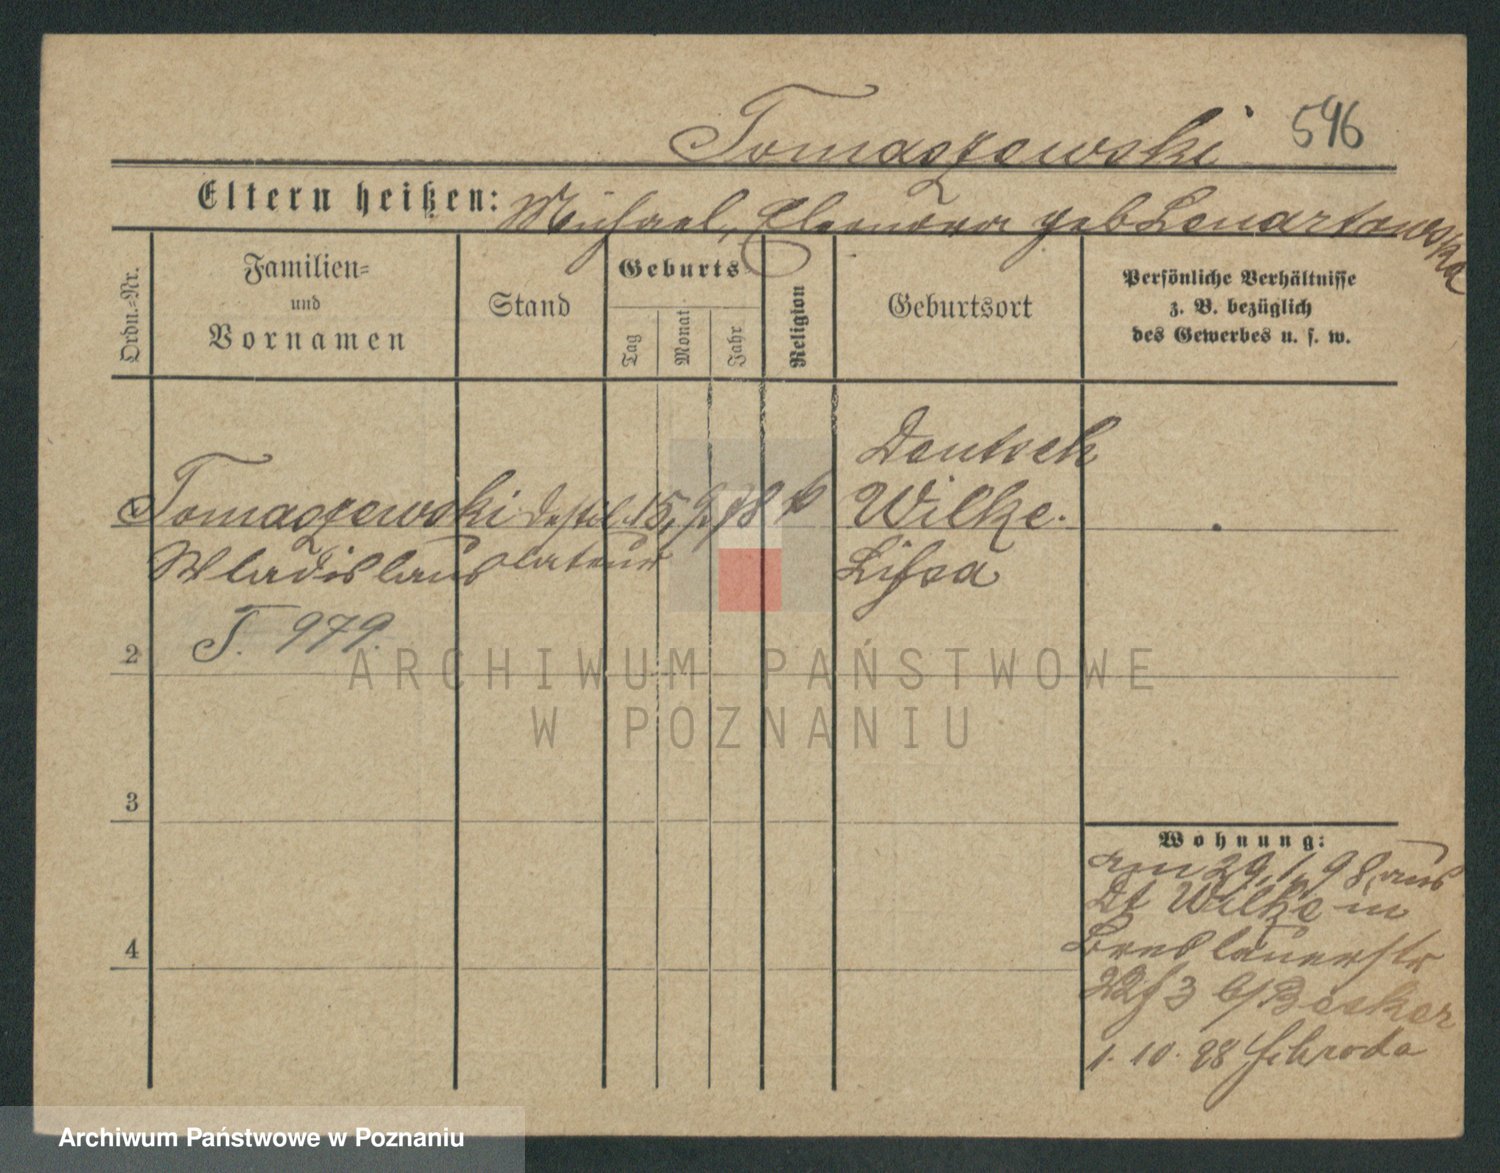 Tomaszewski 596
Eltern heißen: Michael, Eleonora geb Lenartowska
Ordn.-Nr.
Familien-
und
Vornamen
Stand
Geburts
Tag
Monat
Jahr
Religion
Geburtsort
Persönliche Verhältnisse
z. B. bezüglich
des Gewerbes u. s. w.
Deutsch
Tomaszewski Destil 15. 9. 78 k Wilke.
Wladislaus lateur Lissa
T. 979.
2
3
4
Wohnung:
am 29,1,98, aus
Dt Wilke in
Breslauerstr
22/23 b/Becker
1. 10. 98 Schroda
ARCHIWUM PAŃSTWOWE
W POZNANIU
Archiwum Państwowe w Poznaniu